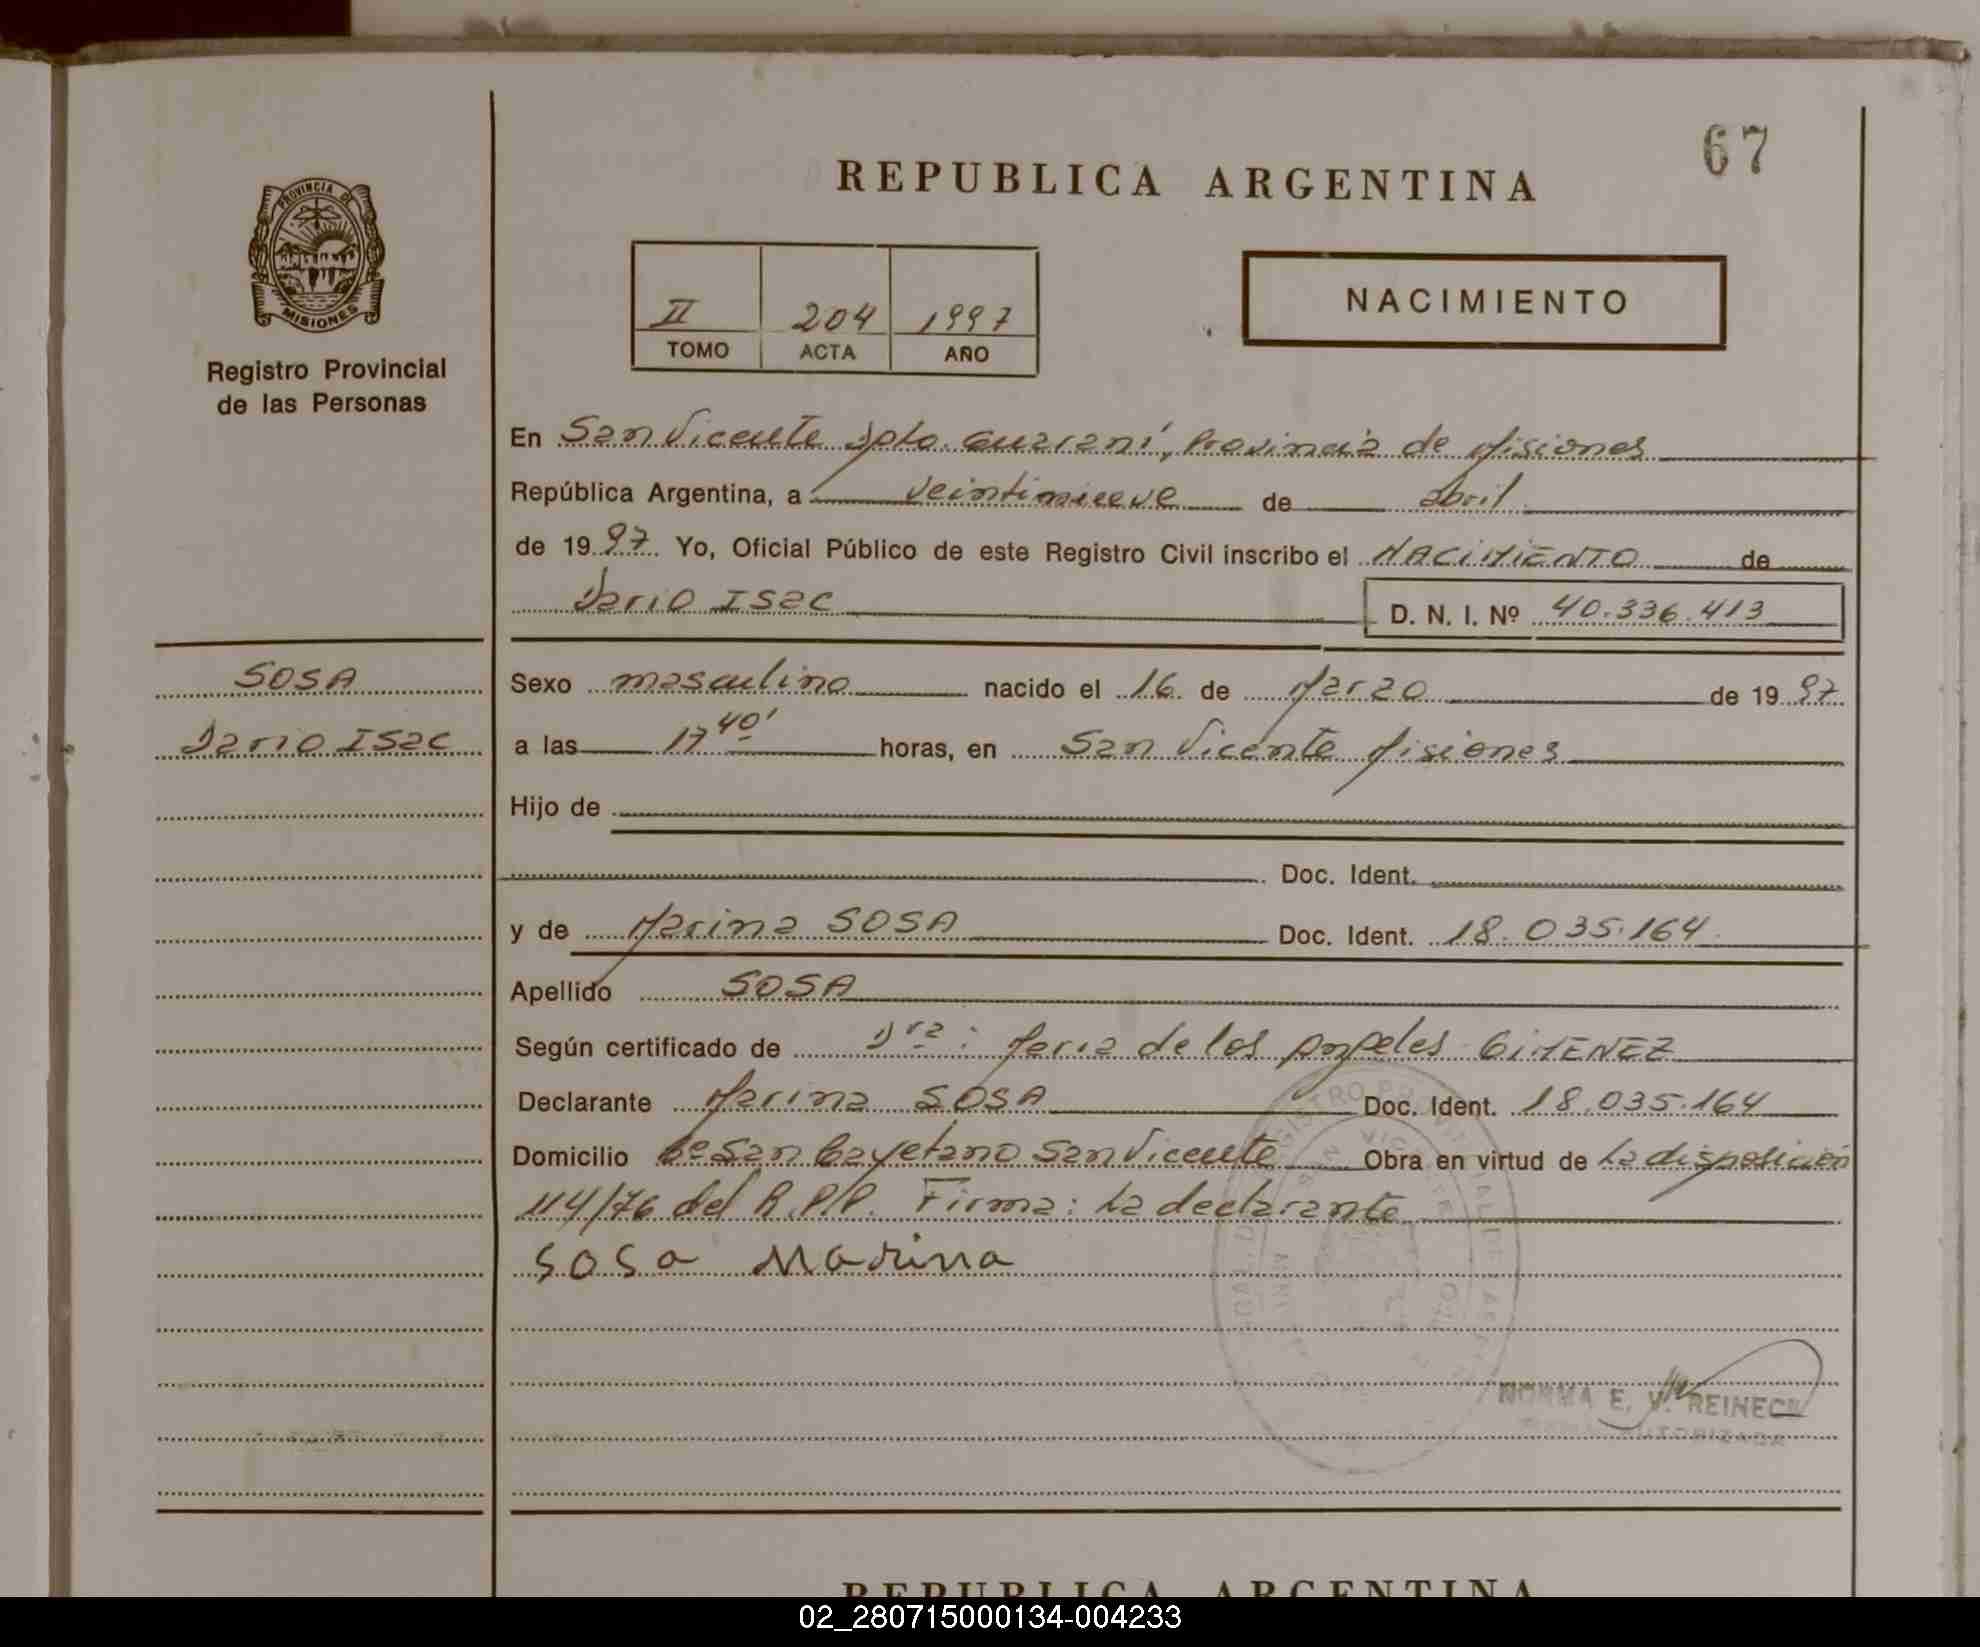 67
REPUBLICA ARGENTINA
PROVINCIA DE
MISIONES
Registro Provincial
de las Personas
II 204 1997
TOMO ACTA AÑO
NACIMIENTO
En San Vicente Dpto. Guaraní, Provincia de Misiones
República Argentina, a veintinueve de abril
de 1997 Yo, Oficial Público de este Registro Civil inscribo el NACIMIENTO de
Dario Isac D. N. I. Nº 40.336.413
SOSA
Dario Isac
Sexo masculino nacido el 16 de Marzo de 1997
a las 17 40' horas, en San Vicente Misiones
Hijo de
Doc. Ident.
y de Marina SOSA Doc. Ident. 18.035.164
Apellido SOSA
Según certificado de Dra: Maria de los Angeles GIMENEZ
Declarante Marina SOSA Doc. Ident. 18.035.164
Domicilio Bº San Cayetano San Vicente Obra en virtud de La disposición
114/76 del R.P.P. Firma: La declarante
Sosa Marina
NORMA E. V. REINECK
FIRMA AUTORIZADA
REPUBLICA ARGENTINA
02_280715000134-004233